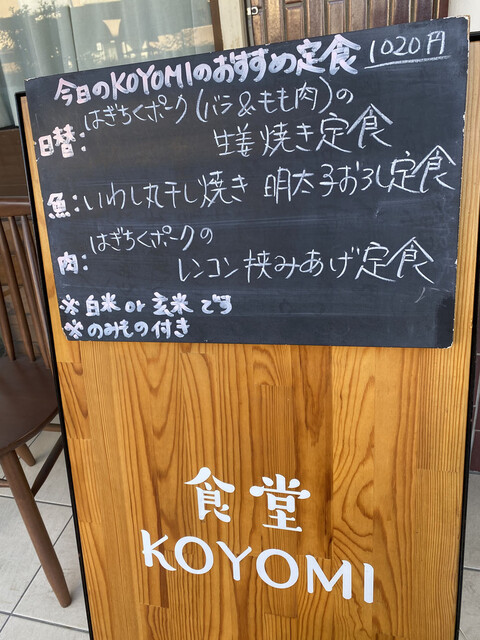 今日のKOYOMIのおすすめ定食 1020円
日替: はぎちくポーク(バラ&もも肉)の
生姜焼き定食
魚: いわし丸干し焼き 明太子おろし定食
肉: はぎちくポークの
レンコン挟みあげ定食
※白米or玄米です
※のみもの付き
食堂
KOYOMI